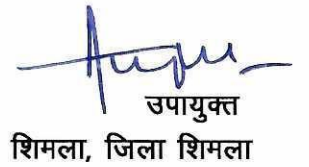 उपायुक्त
शिमला, जिला शिमला